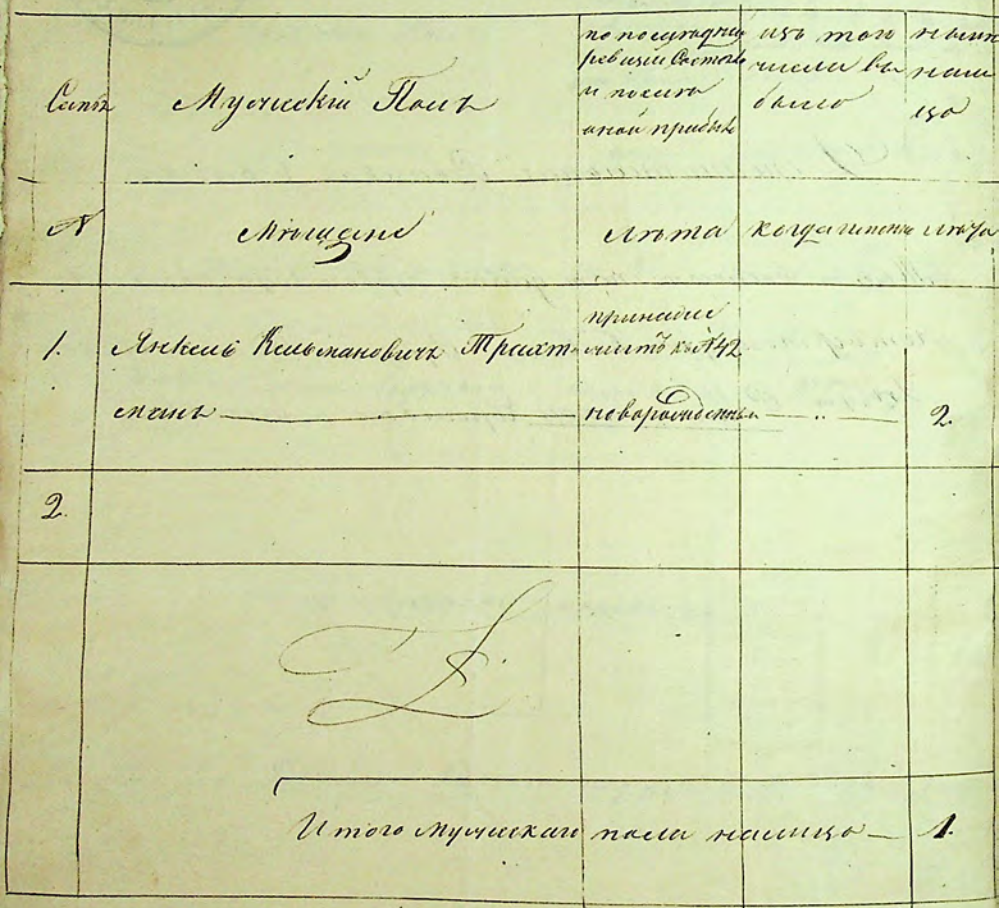 Семья
Мужескій Полъ
по последней
ревизіи Состоял
и после
оной прибыло
изъ того
числа вы
было
ныне
нали
цо
№
Мѣщане
лѣта
когда именно
лѣта
1.
Янкель Кельманович Трахт-
манъ
принадле
житъ къ №42
новорожденны
2.
2.
Итого мужескаго пола налицо — 1.